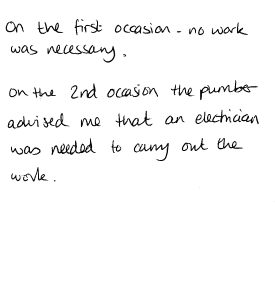 On the first occasion - no work
was necessary.
on the 2nd occasion the pumber
advised me that an electrician
was needed to carry out the
work.